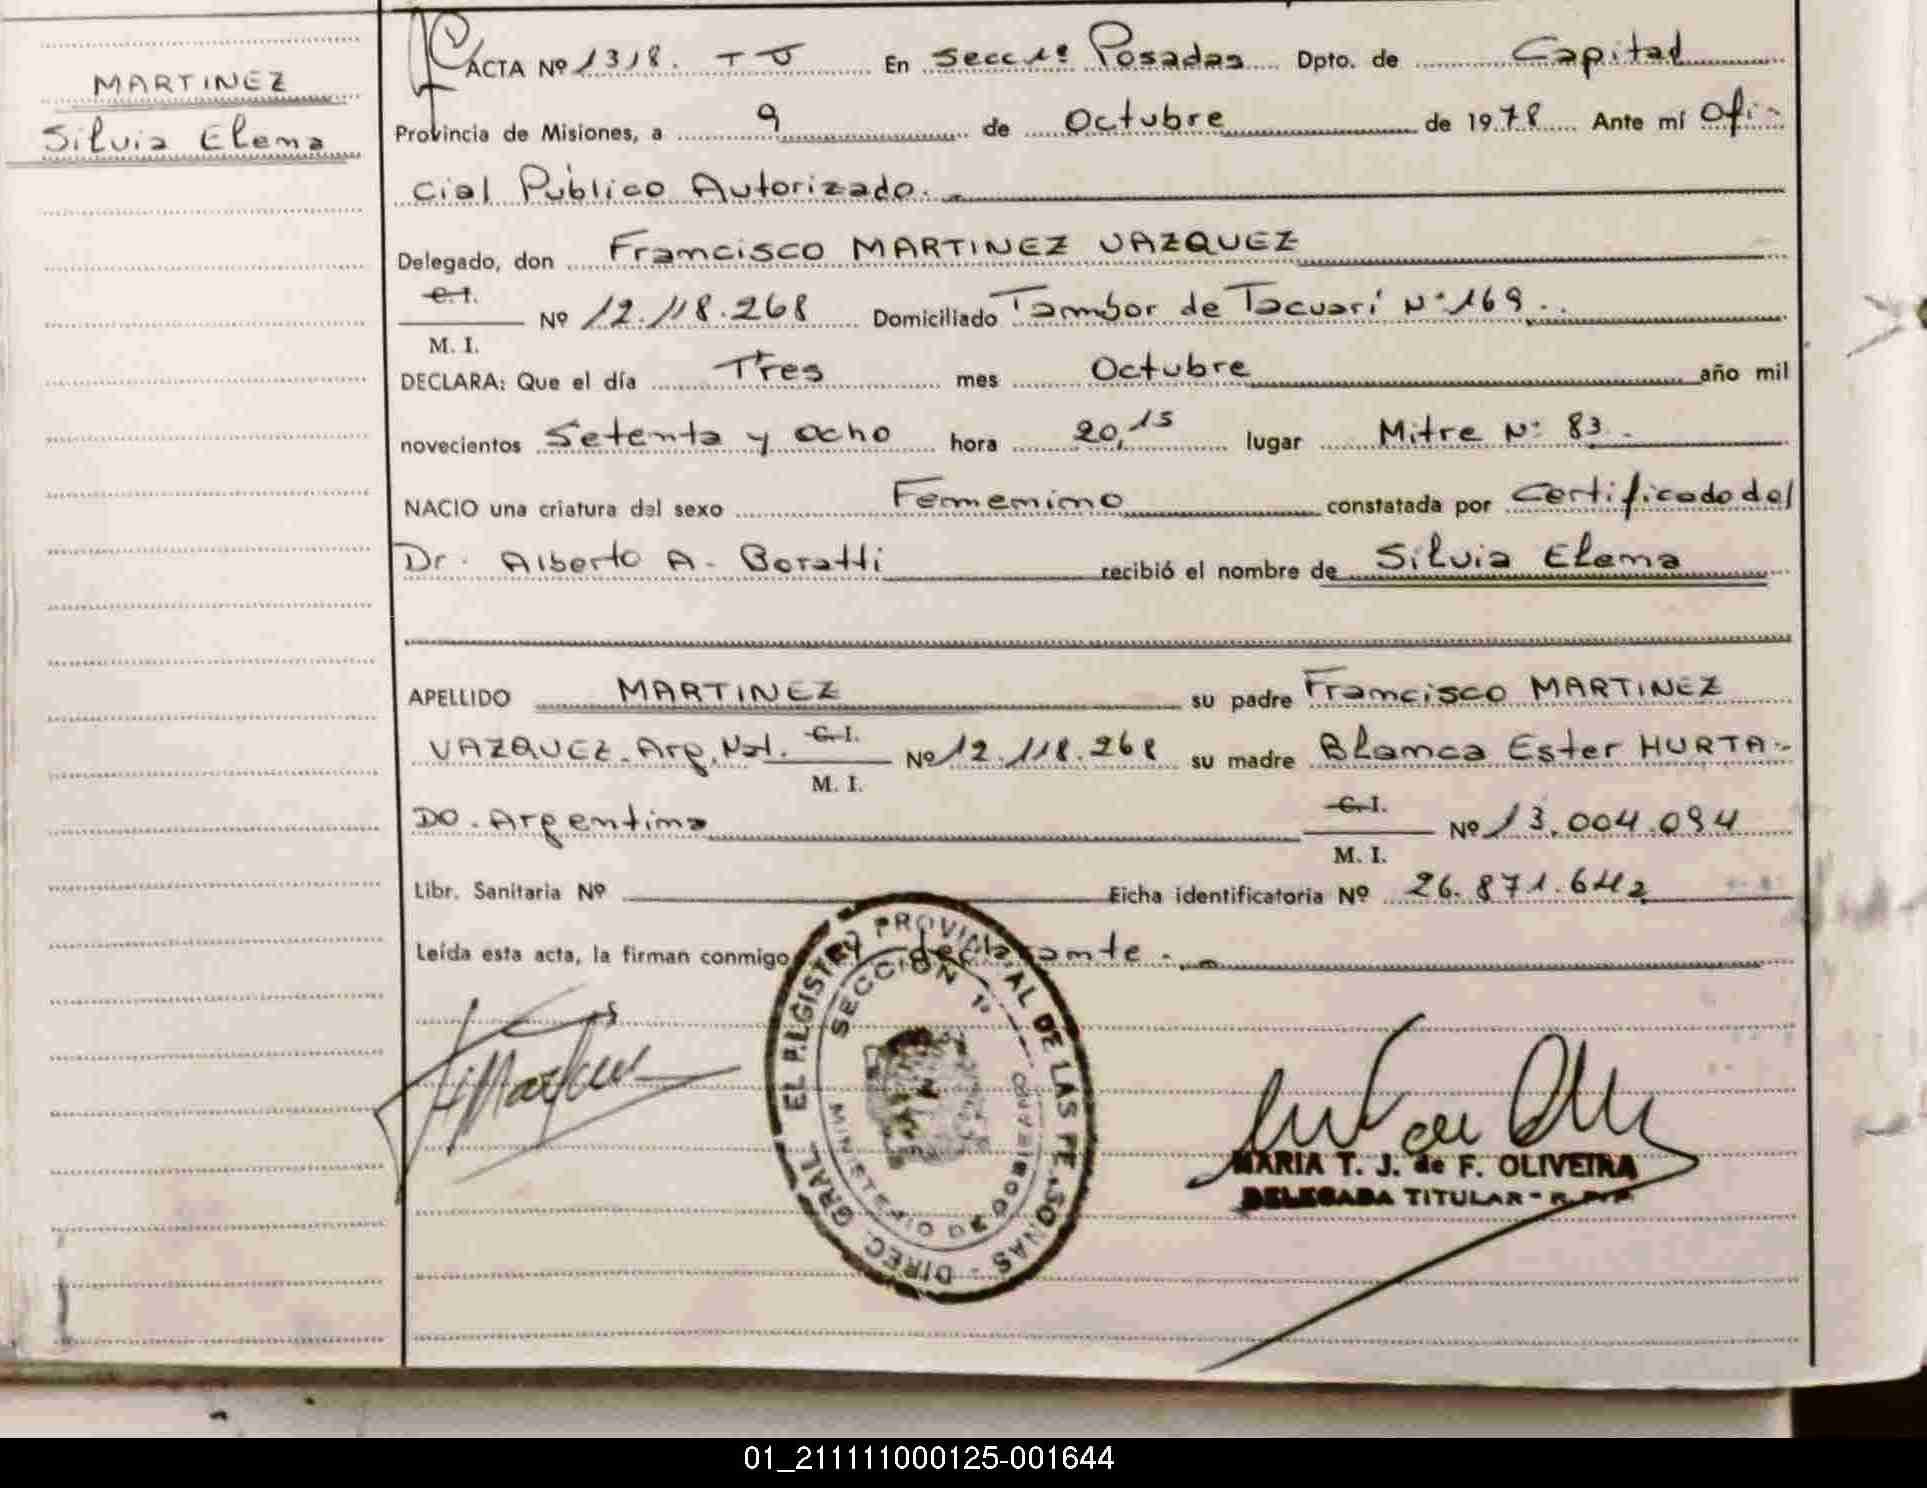 MARTINEZ
Silvia Elena
ACTA Nº 1318. T-J En Secc 1ª Posadas Dpto. de Capital
Provincia de Misiones, a 9 de Octubre de 1978 Ante mí Ofi-
cial Público Autorizado.
Delegado, don Francisco MARTINEZ VAZQUEZ
C.I.
Nº 12.118.268 Domiciliado Tambor de Tacuarí Nº 169.
M. I.
DECLARA: Que el día Tres mes Octubre año mil
novecientos Setenta y Ocho hora 20,15 lugar Mitre Nº 83.
NACIO una criatura del sexo Femenino constatada por Certificado del
Dr. Alberto A. Boratti recibió el nombre de Silvia Elena
APELLIDO MARTINEZ su padre Francisco MARTINEZ
VAZQUEZ. Arg. Nat. C.I. Nº 12.118.268 su madre Blanca Ester HURTA-
M. I.
DO. Argentina C.I. Nº 13.004.094
M. I.
Libr. Sanitaria Nº Ficha identificatoria Nº 26.871.642
Leída esta acta, la firman conmigo el declarante.
DIREC. GRAL. DEL REGISTRO PROVINCIAL DE LAS PERSONAS
SECCION 1ª
MINISTERIO DE GOBIERNO
MARIA T. J. de F. OLIVEIRA
DELEGADA TITULAR - R.P.P.
01_211111000125-001644